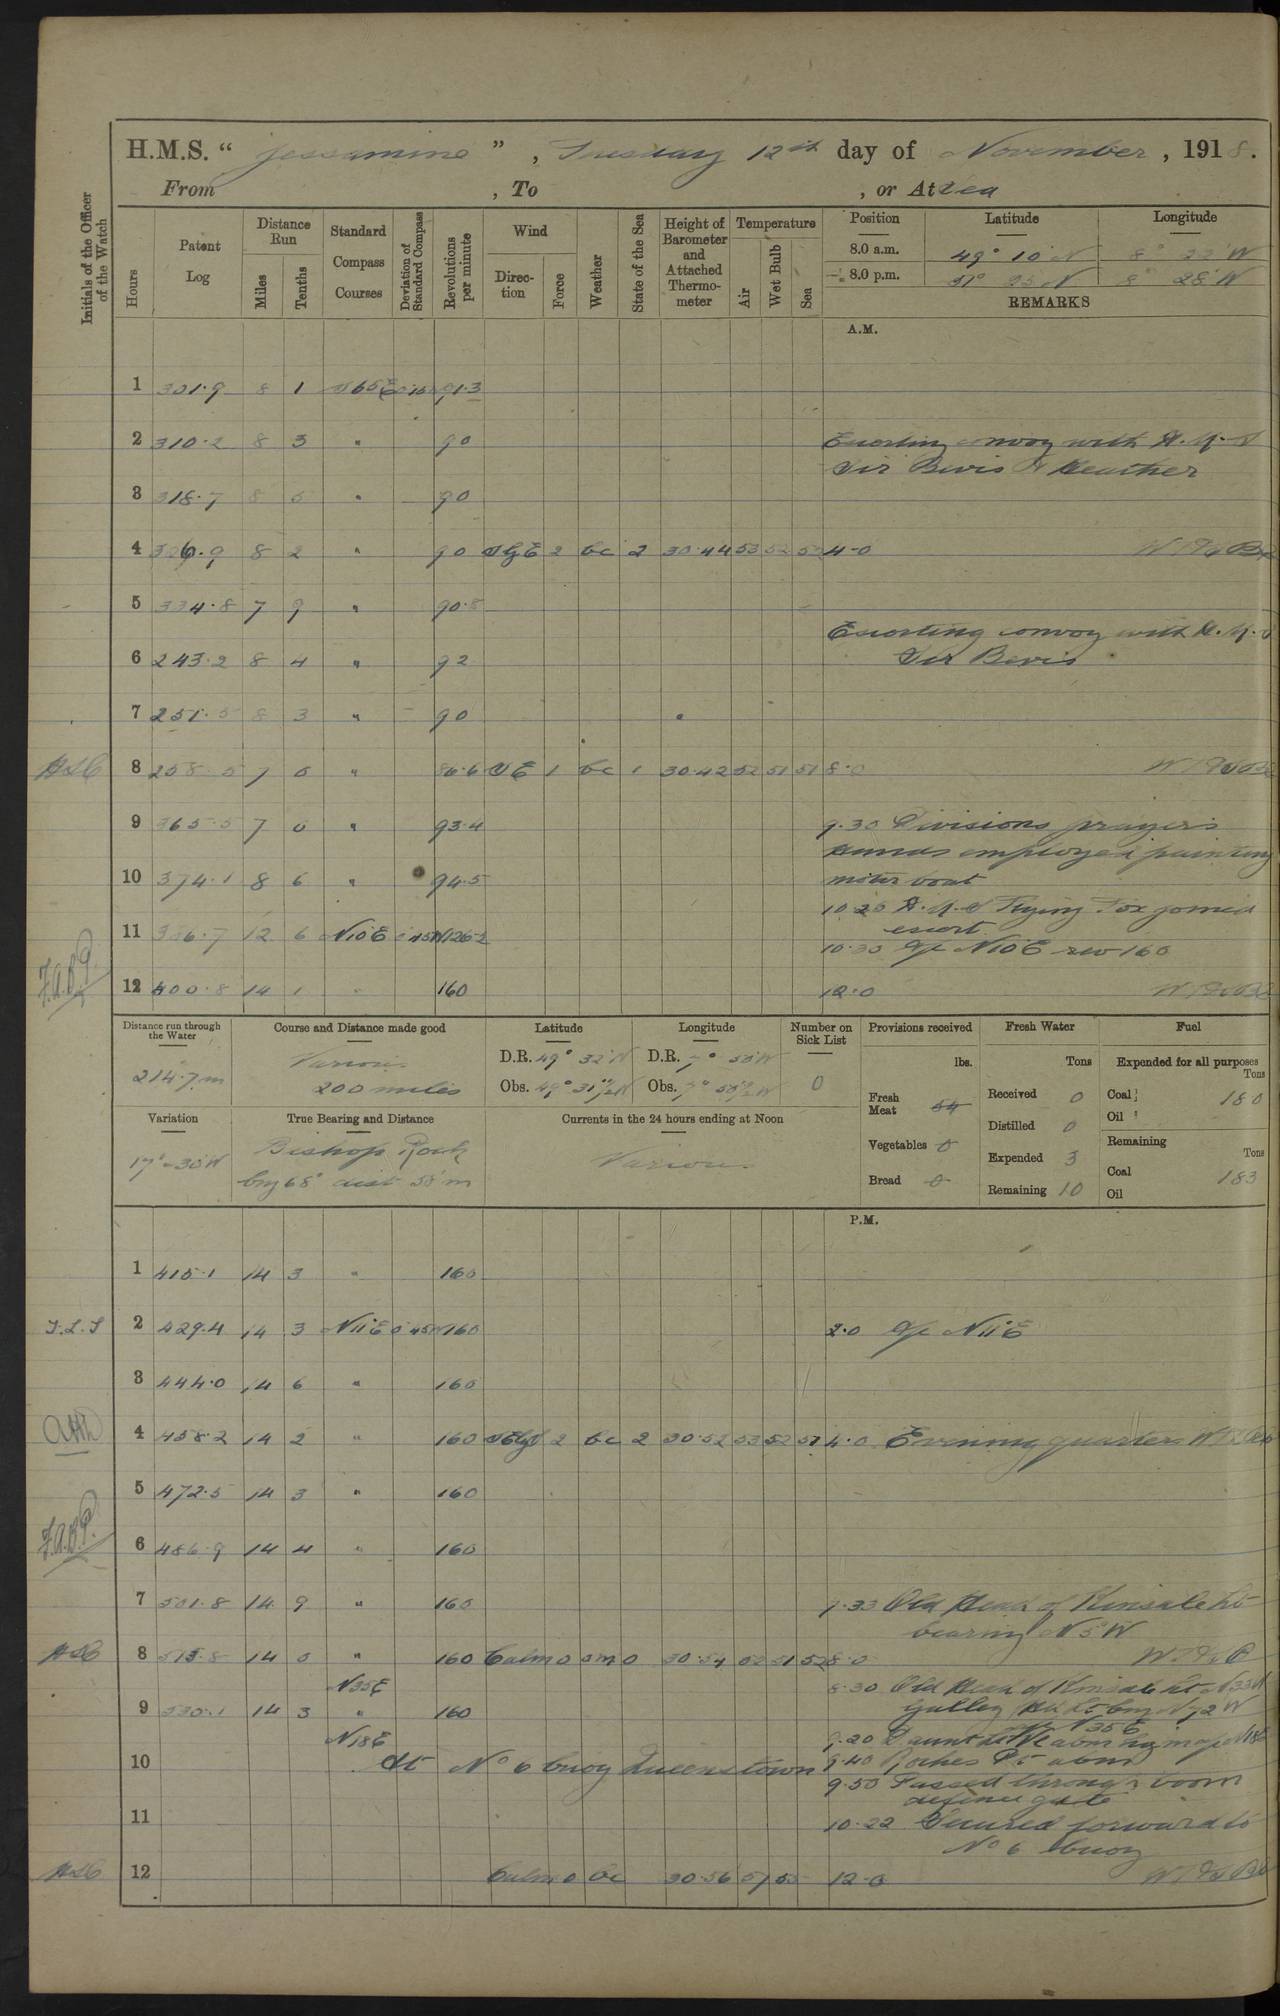 H.M.S. " Jessamine ", Tuesday 12th day of November, 1918.
From , To , or At Sea
Initials of the Officer of the Watch
Hours
Patent Log
Distance Run
Miles
Tenths
Standard Compass Courses
Deviation of Standard Compass
Revolutions per minute
Wind
Direction
Force
Weather
State of the Sea
Height of Barometer and Attached Thermometer
Temperature
Air
Wet Bulb
Sea
Position Latitude Longitude
8.0 a.m. 49° 10' N 8° W
8.0 p.m. 51° N 8° 28' W
REMARKS
A.M.
1 301.9 8 1 91.3
2 310.2 8 3 " 90 Escorting convoy with H.M.S
Sir Bevis & Heather
3 318.7 8 5 " 90
4 326.9 8 2 " 90 SbyE 2 bc 2 30.44 53 52 4-0
5 334.8 7 9 " 90.5
Escorting convoy with H.M.S
6 243.2 8 4 " 92 Sir Bevis
7 251.5 8 3 " 90
8 258.5 7 0 " 86.6 SE 1 bc 1 30.42 52 51 51 8.0
9 365.5 7 0 " 93.4 9.30 Divisions prayers
Hands employed painting
10 374.1 8 6 " 94.5 motor boat
10.20 H.M.S Flying Fox joined
11 386.7 12 6 N10E escort.
10.30 a/c N10E rev 160
F.A.B.P. 12 400.8 14 1 " 160 12.0
Distance run through the Water
214.7 m
Course and Distance made good
Various
200 miles
Latitude
D.R. 49° 32' N
Obs. 49° 31½' N
Longitude
D.R. 7° 58' W
Obs. 7° 58½' W
Number on Sick List
0
Provisions received
lbs.
Fresh Meat 54
Vegetables 0
Bread 0
Fresh Water
Tons
Received 0
Distilled 0
Expended 3
Remaining 10
Fuel
Expended for all purposes
Tons
Coal 180
Oil
Remaining
Tons
Coal 183
Oil
Variation
17°-30'W
True Bearing and Distance
Bishop Rock
brg 68° dist 58' m
Currents in the 24 hours ending at Noon
Various
P.M.
1 415.1 14 3 " 160
2 429.4 14 3 N11E 160 2.0 a/c N11°E
3 444.0 14 6 " 160
4 458.2 14 2 " 160 2 bc 2 30.52 53 52 51 4.0 Evening quarters
5 472.5 14 3 " 160
F.A.B.P. 6 486.9 14 4 " 160
7 501.8 14 9 " 160 7.33 Old Head of Kinsale Lt
bearing N5°W
8 515.8 14 0 " 160 Calm 0 om 0 30.54 52 51 52 8.0
N35E 8.30 Old Head of Kinsale Lt
9 530.1 14 3 " 160 Galley Hd Lt brg N72W
N18E 9.20
10 At No 6 buoy Queenstown 9.40 Roches Pt abm
9.50 Passed through boom
defence gate
11 10.22 Secured forward to
No 6 buoy
12 Calm 0 bc 30.56 12-0